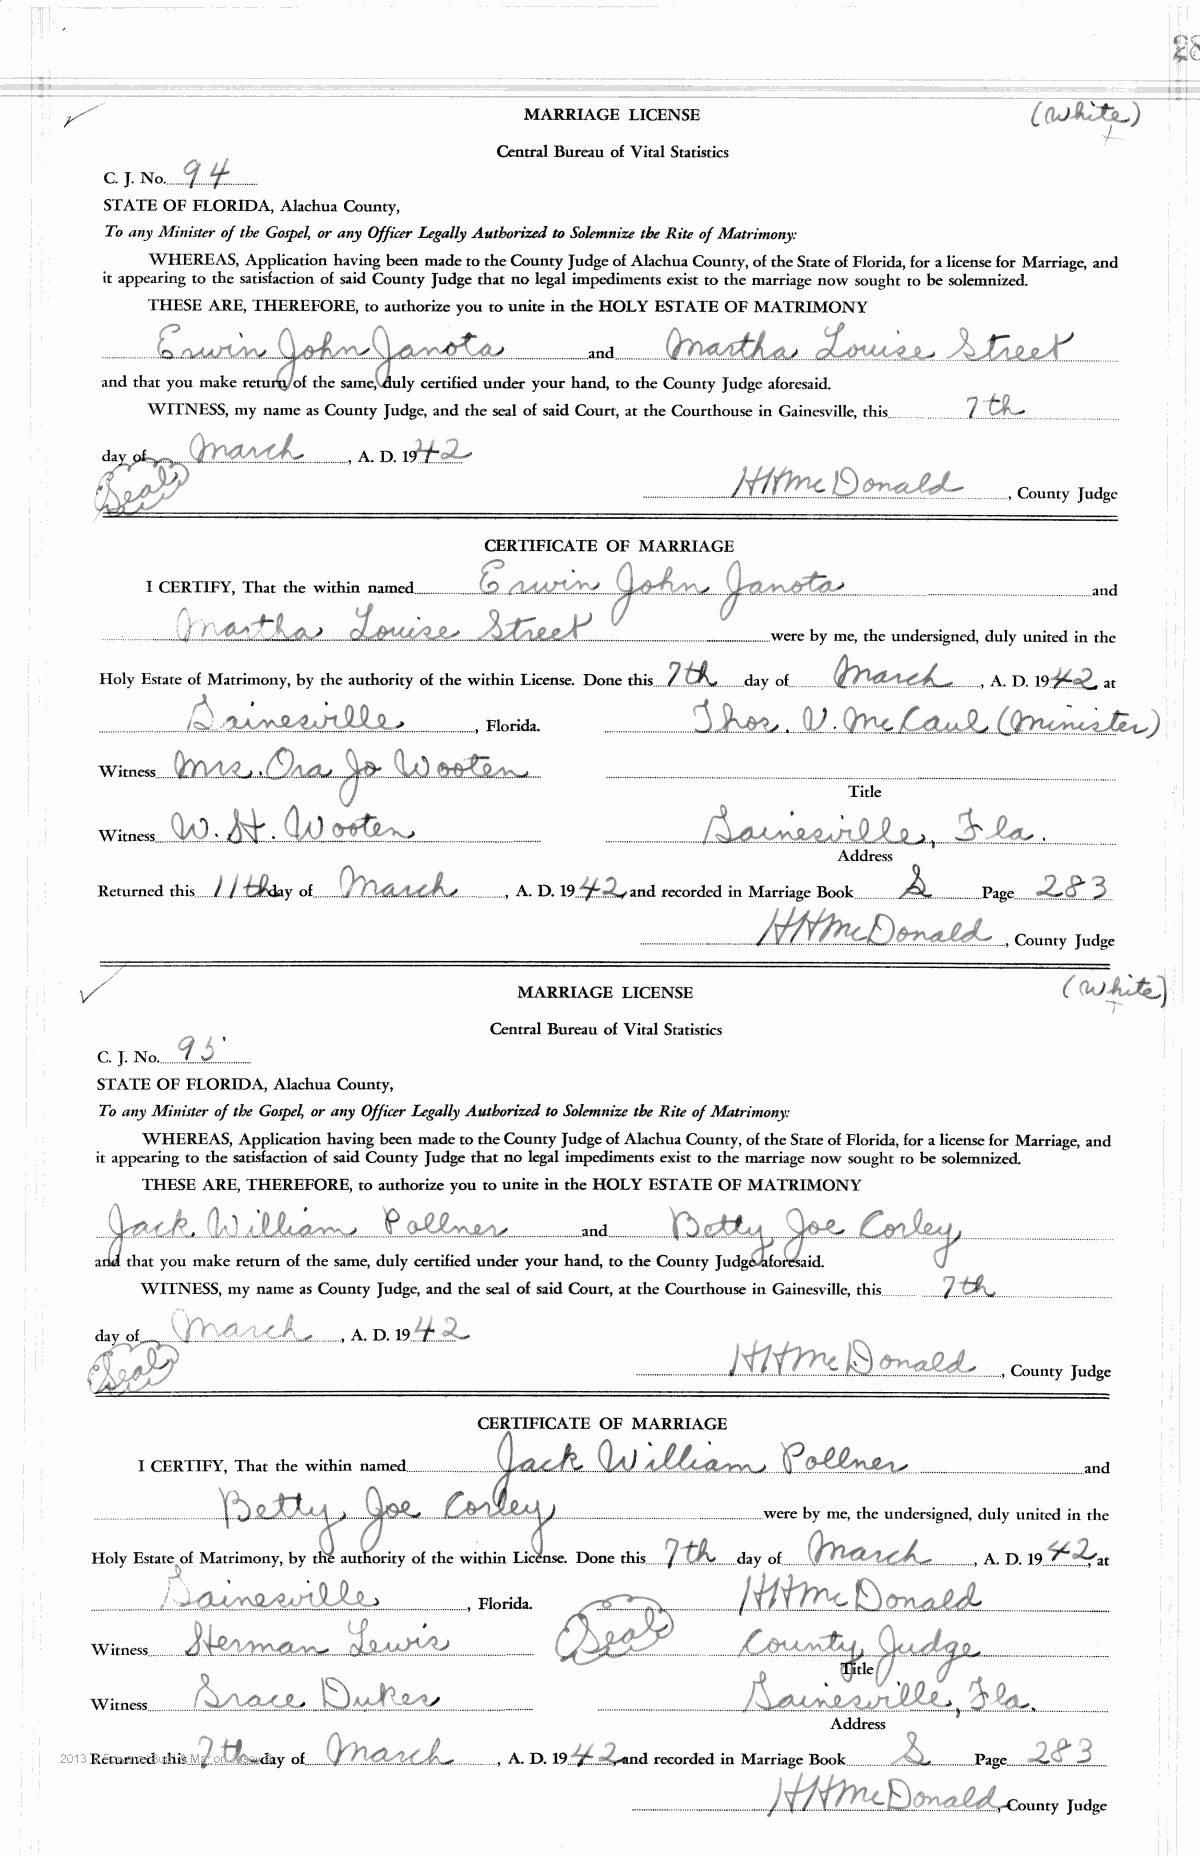 28
MARRIAGE LICENSE (White)
Central Bureau of Vital Statistics
C. J. No. 94
STATE OF FLORIDA, Alachua County,
To any Minister of the Gospel, or any Officer Legally Authorized to Solemnize the Rite of Matrimony:
WHEREAS, Application having been made to the County Judge of Alachua County, of the State of Florida, for a license for Marriage, and
it appearing to the satisfaction of said County Judge that no legal impediments exist to the marriage now sought to be solemnized.
THESE ARE, THEREFORE, to authorize you to unite in the HOLY ESTATE OF MATRIMONY
Erwin John Janota and Martha Louise Street
and that you make return of the same, duly certified under your hand, to the County Judge aforesaid.
WITNESS, my name as County Judge, and the seal of said Court, at the Courthouse in Gainesville, this 7th
day of March, A. D. 1942
(Seal) HHMcDonald, County Judge
CERTIFICATE OF MARRIAGE
I CERTIFY, That the within named Erwin John Janota and
Martha Louise Street were by me, the undersigned, duly united in the
Holy Estate of Matrimony, by the authority of the within License. Done this 7th day of March, A. D. 1942, at
Gainesville, Florida. Thos. V. McCaul (Minister)
Witness Mrs. Ora Jo Wooten
Title
Witness W. H. Wooten Gainesville, Fla.
Address
Returned this 11th day of March, A. D. 1942, and recorded in Marriage Book S Page 283
HHMcDonald, County Judge
MARRIAGE LICENSE (White)
Central Bureau of Vital Statistics
C. J. No. 95
STATE OF FLORIDA, Alachua County,
To any Minister of the Gospel, or any Officer Legally Authorized to Solemnize the Rite of Matrimony:
WHEREAS, Application having been made to the County Judge of Alachua County, of the State of Florida, for a license for Marriage, and
it appearing to the satisfaction of said County Judge that no legal impediments exist to the marriage now sought to be solemnized.
THESE ARE, THEREFORE, to authorize you to unite in the HOLY ESTATE OF MATRIMONY
Jack William Pollner and Betty Joe Corley
and that you make return of the same, duly certified under your hand, to the County Judge aforesaid.
WITNESS, my name as County Judge, and the seal of said Court, at the Courthouse in Gainesville, this 7th
day of March, A. D. 1942
(Seal) HHMcDonald, County Judge
CERTIFICATE OF MARRIAGE
I CERTIFY, That the within named Jack William Pollner and
Betty Joe Corley were by me, the undersigned, duly united in the
Holy Estate of Matrimony, by the authority of the within License. Done this 7th day of March, A. D. 1942, at
Gainesville, Florida. HHMcDonald
Witness Herman Lewis (Seal) County Judge
Title
Witness Grace Dukes Gainesville, Fla.
Address
2013
Returned this 7th day of March, A. D. 1942, and recorded in Marriage Book S Page 283
HHMcDonald, County Judge